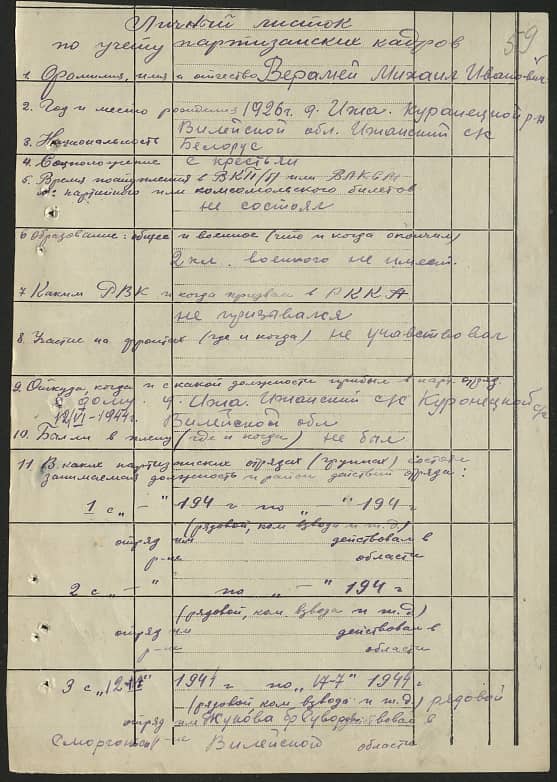 Личный листок
по учету партизанских кадров
59
1. Фамилия, имя и отчество Верамей Михаил Иванович
2. Год и место рождения 1926г. д. Ижа. Куранецкой р-н
Вилейской обл. Ижанский с/с
3. Национальность Белорус
4. Соцположение с крестьян
5. Время поступления в ВКП/П или ВЛКСМ
№: партийного или комсомольского билетов
не состоял
6 Образование: общее и военное (что и когда окончил)
2 кл. военного не имеет.
7 Каким РВК и когда призван в РККА
не призывался
8. Участие на фронтах (где и когда) не учавствовал
9. Откуда, когда и с какой должности прибыл в парт. отряд.
с дому. д. Ижа. Ижанский с/с Куронецкой
12/VI-1944г. Вилейской обл
10. Был ли в плену (где и когда) не был
11 В каких партизанских отрядах (группах) состоял
занимаемая должность и район действий отряда:
1 с „ – " 194 г по „ – " 194 г
(рядовой, ком взвода и т.д.)
отряд им действовал в
р-не области
2 с „ – " по „ – " 194 г
(рядовой, ком взвода и т.д.)
отряд им действовал в
р-не области
3 с „12 " 1944 г по „17-7" 1944 г
(рядовой, ком взвода и т.д.) рядовой
отряд им Жукова бр Суворова действовал в
р-не Вилейской области